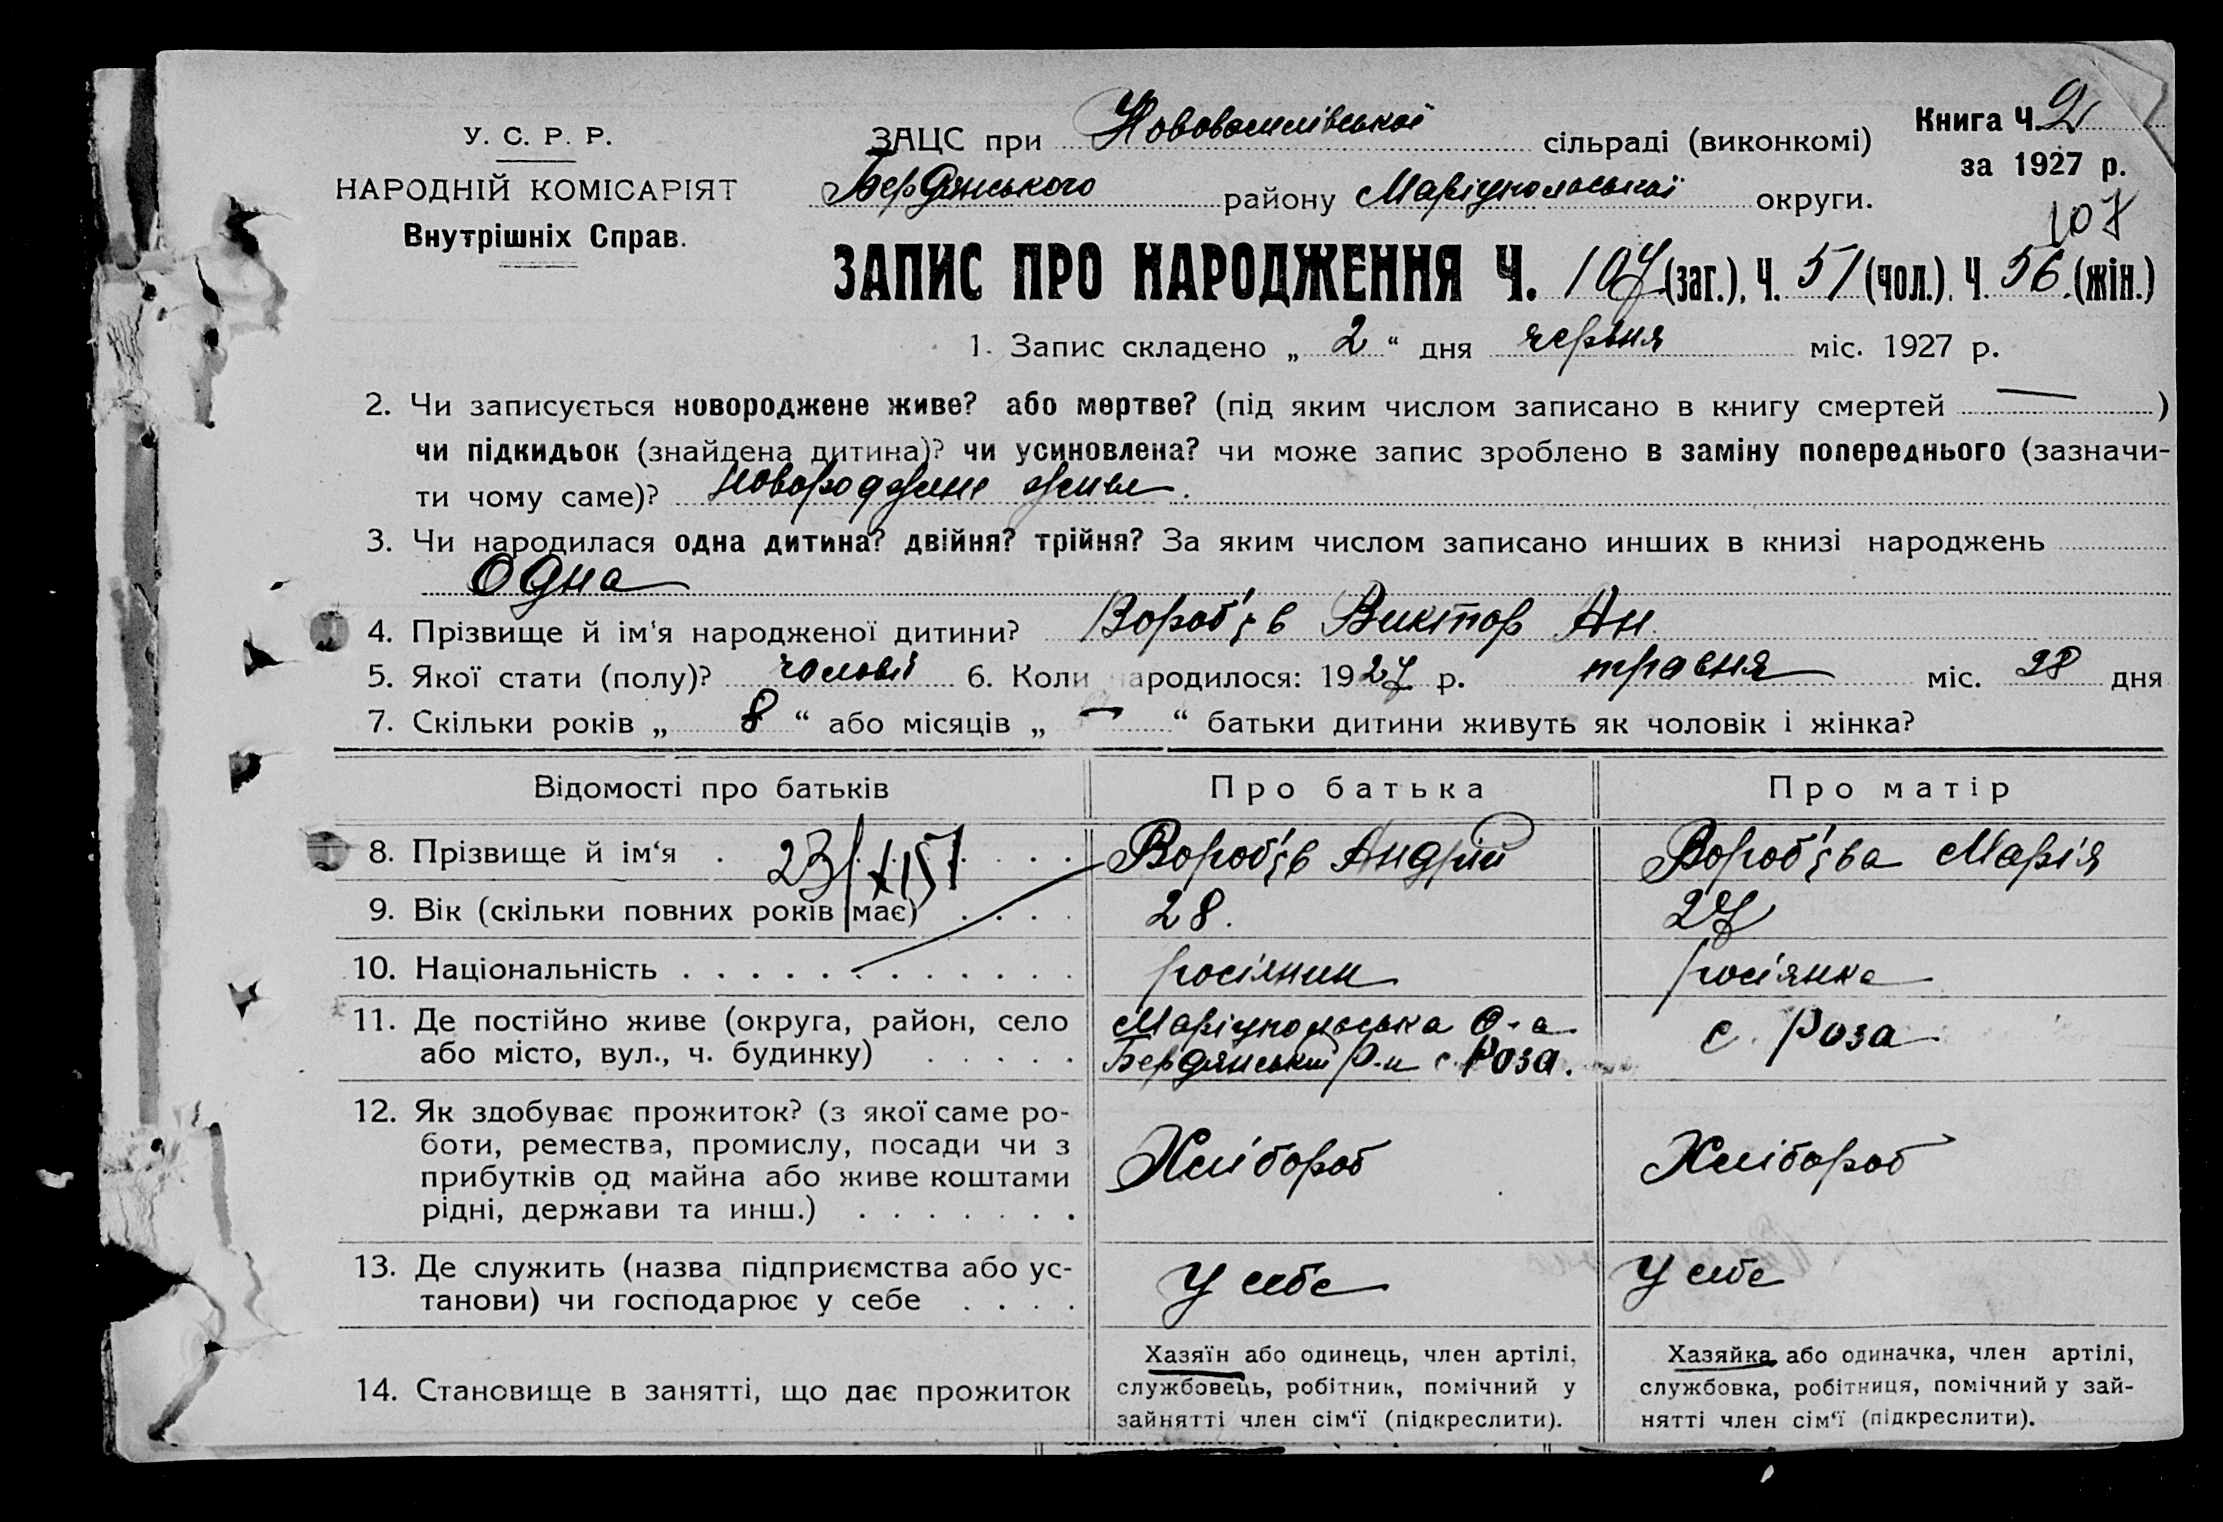 У. С. Р. Р.
НАРОДНІЙ КОМІСАРІЯТ
Внутрішніх Справ.
ЗАЦС при Нововасилівської сільраді (виконкомі)
Бердянського району Маріупольської округи.
Книга Ч. 2
за 1927 р.
107
ЗАПИС ПРО НАРОДЖЕННЯ Ч. 107 (заг.), Ч. 51 (чол.), Ч. 56 (жін.)
1. Запис складено „ 2 “ дня червня міс. 1927 р.
2. Чи записується новороджене живе? або мертве? (під яким числом записано в книгу смертей — )
чи підкидьок (знайдена дитина)? чи усиновлена? чи може запис зроблено в заміну попереднього (зазначи-
ти чому саме)? новороджене живе.
3. Чи народилася одна дитина? двійня? трійня? За яким числом записано инших в книзі народжень
Одна
4. Прізвище й ім'я народженої дитини? Вороб'їв Виктор Ан.
5. Якої стати (полу)? чоловіч 6. Коли народилося: 1927 р. травня міс. 28 дня
7. Скільки років „ 8 “ або місяців „ — “ батьки дитини живуть як чоловік і жінка?
Відомості про батьків Про батька Про матір
8. Прізвище й ім'я Вороб'їв Андрій Вороб'їва Марія
9. Вік (скільки повних років має) 28. 27
10. Національність росіянин росіянка
11. Де постійно живе (округа, район, село Маріупольська О-а с. Роза
або місто, вул., ч. будинку) Бердянський р-н с. Роза.
12. Як здобуває прожиток? (з якої саме ро-
боти, ремества, промислу, посади чи з Хлібороб Хлібороб
прибутків од майна або живе коштами
рідні, держави та инш.)
13. Де служить (назва підприємства або ус- У себе У себе
танови) чи господарює у себе
14. Становище в занятті, що дає прожиток
Хазяїн або одинець, член артілі,
службовець, робітник, помічний у
зайнятті член сім'ї (підкреслити).
Хазяйка або одиначка, член артілі,
службовка, робітниця, помічний у зай-
нятті член сім'ї (підкреслити).